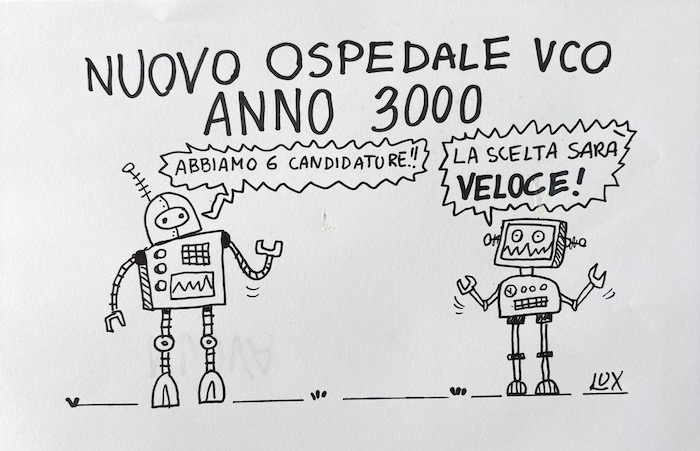 NUOVO OSPEDALE VCO
ANNO 3000
ABBIAMO 6 CANDIDATURE!!
LA SCELTA SARÀ
VELOCE!
LUX